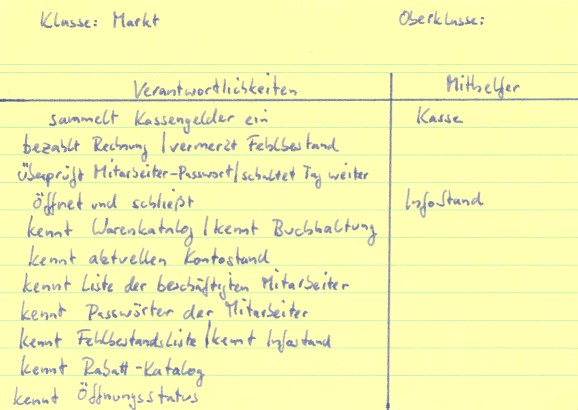 Klasse: Markt Oberklasse:
Verantwortlichkeiten Mithelfer
sammelt Kassengelder ein Kasse
bezahlt Rechnung / vermerzt Fehlbestand
überprüft Mitarbeiter-Passwort / schaltet Tag weiter
öffnet und schließt Infostand
kennt Warenkatalog / kennt Buchhaltung
kennt aktuellen Kontostand
kennt Liste der beschäftigten Mitarbeiter
kennt Passwörter der Mitarbeiter
kennt Fehlbestandsliste / kennt Infostand
kennt Rabatt-Katalog
kennt Öffnungsstatus